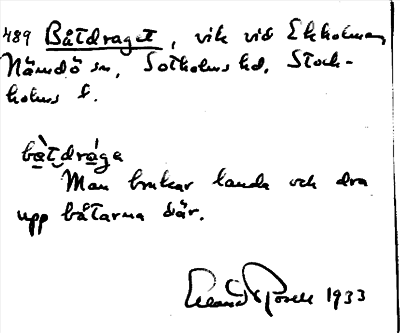 489 Båtdraget, vik vid Ekholmen,
Nämdö sn, Sotholms hd, Stock-
holms l.
båtdraga
Man brukar landa och dra
upp båtarna där.
1933